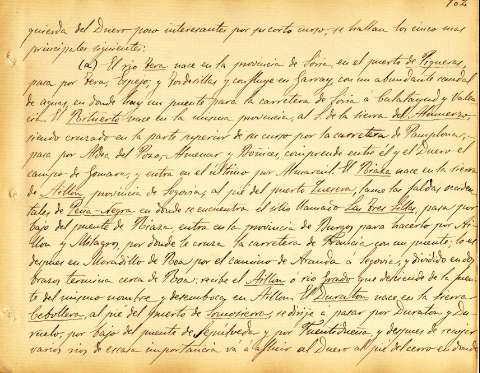 102
quierda del Duero pero interesantes por su corto curso, se hallan los cinco mas
principales siguientes:
(a) El rio Tera nace en la provincia de Soria, en el puerto de Piqueras,
pasa por Tera, Espejo, y Tordesillas y confluye en Garray, con un abundante caudal
de aguas, en donde hay un puente para la carretera de Soria á Calatayud y Valen
cia. El Rituerto nace en la misma provincia, al S. de la sierra del Almuerzo,
siendo cruzado en la parte superior de su curso por la carretera de Pamplona,
pasa por Aldea del Pozo, Almenar y comprende entre él y el Duero el
campo de Gomara, y entra en el último por . El Riaza nace en la sierra
de Aillon provincia de Segovia, al pié del puerto , lame las faldas occiden
tales de Peña-Negra en donde se encuentra el sitio llamado Las tres Sillas, pasa por
bajo del puente de Riaza, entra en la provincia de Burgos para hacerlo por Ai-
llon y Milagros, por donde le cruza la carretera de Francia, con un puente, lo es
despues en Moradillo de Roa por el camino de Aranda á Segovia, y dividido en dos
brazos termina cerca de Roa; recibe el Aillon ó rio Grado que desciende de la fuen
te del mismo nombre y desemboca en Aillon. El Duraton nace en la sierra
Cebollera, al pié del puerto de Somosierra, se dirije a pasar por Duraton y Du-
ruelo, por bajo del puente de Sepúlveda y por Fuentidueña y despues de recojer
varios rios de escasa importancia vá á afluir al Duero al pié del cerro en donde